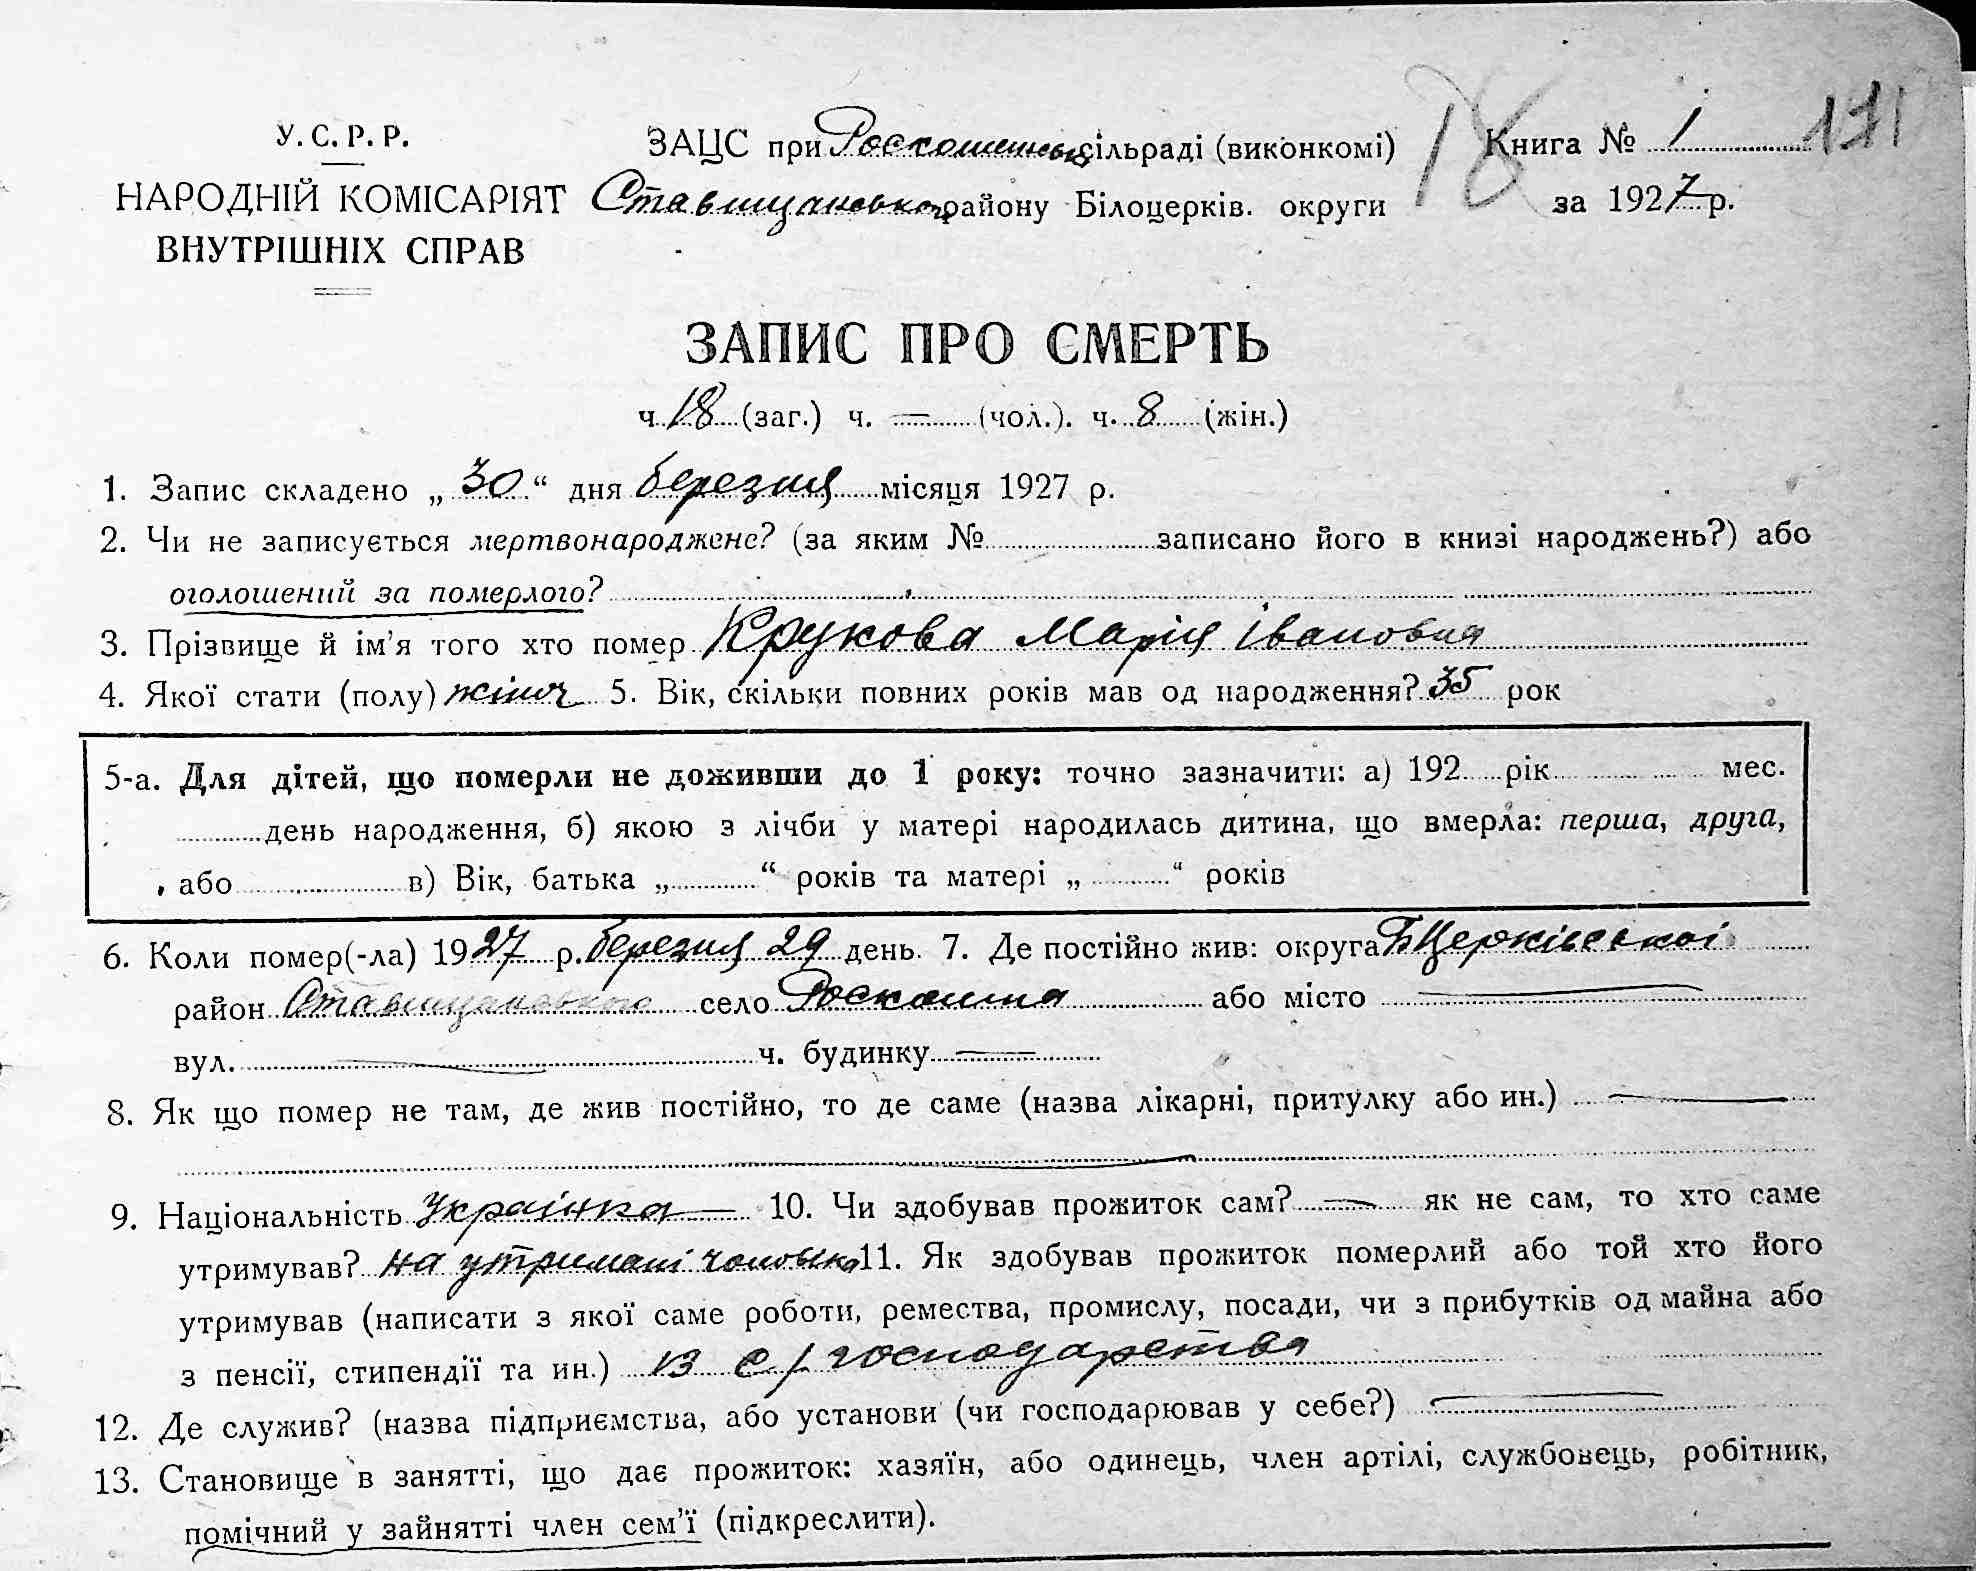 У. С. Р. Р.
НАРОДНІЙ КОМІСАРІЯТ
ВНУТРІШНІХ СПРАВ
ЗАЦС при Роскошинській сільраді (виконкомі)
Ставищанського району Білоцерків. округи
18
Книга № 1
171
за 1927 р.
ЗАПИС ПРО СМЕРТЬ
ч. 18 (заг.) ч. — (чол.). ч. 8 (жін.)
1. Запис складено „ 30 “ дня березня місяця 1927 р.
2. Чи не записується мертвонароджене? (за яким № записано його в книзі народжень?) або
оголошений за померлого?
3. Прізвище й ім'я того хто помер Крукова Марія Івановна
4. Якої стати (полу) жіноч 5. Вік, скільки повних років мав од народження? 35 рок
5-а. Для дітей, що померли не доживши до 1 року: точно зазначити: а) 192 рік мес.
день народження, б) якою з лічби у матері народилась дитина, що вмерла: перша, друга,
або в) Вік, батька „ “ років та матері „ “ років
6. Коли помер(-ла) 1927 р. березня 29 день. 7. Де постійно жив: округа БЦерківської
район Ставищановського село Роскошна або місто —
вул. — ч. будинку —
8. Як що помер не там, де жив постійно, то де саме (назва лікарні, притулку або ин.) —
9. Національність Українка — 10. Чи здобував прожиток сам? — як не сам, то хто саме
утримував? на утримані чоловіка 11. Як здобував прожиток померлий або той хто його
утримував (написати з якої саме роботи, ремества, промислу, посади, чи з прибутків од майна або
з пенсії, стипендії та ин.) із с/господарства
12. Де служив? (назва підприємства, або установи (чи господарював у себе?) —
13. Становище в занятті, що дає прожиток: хазяїн, або одинець, член артілі, службовець, робітник,
помічний у зайнятті член сем'ї (підкреслити).